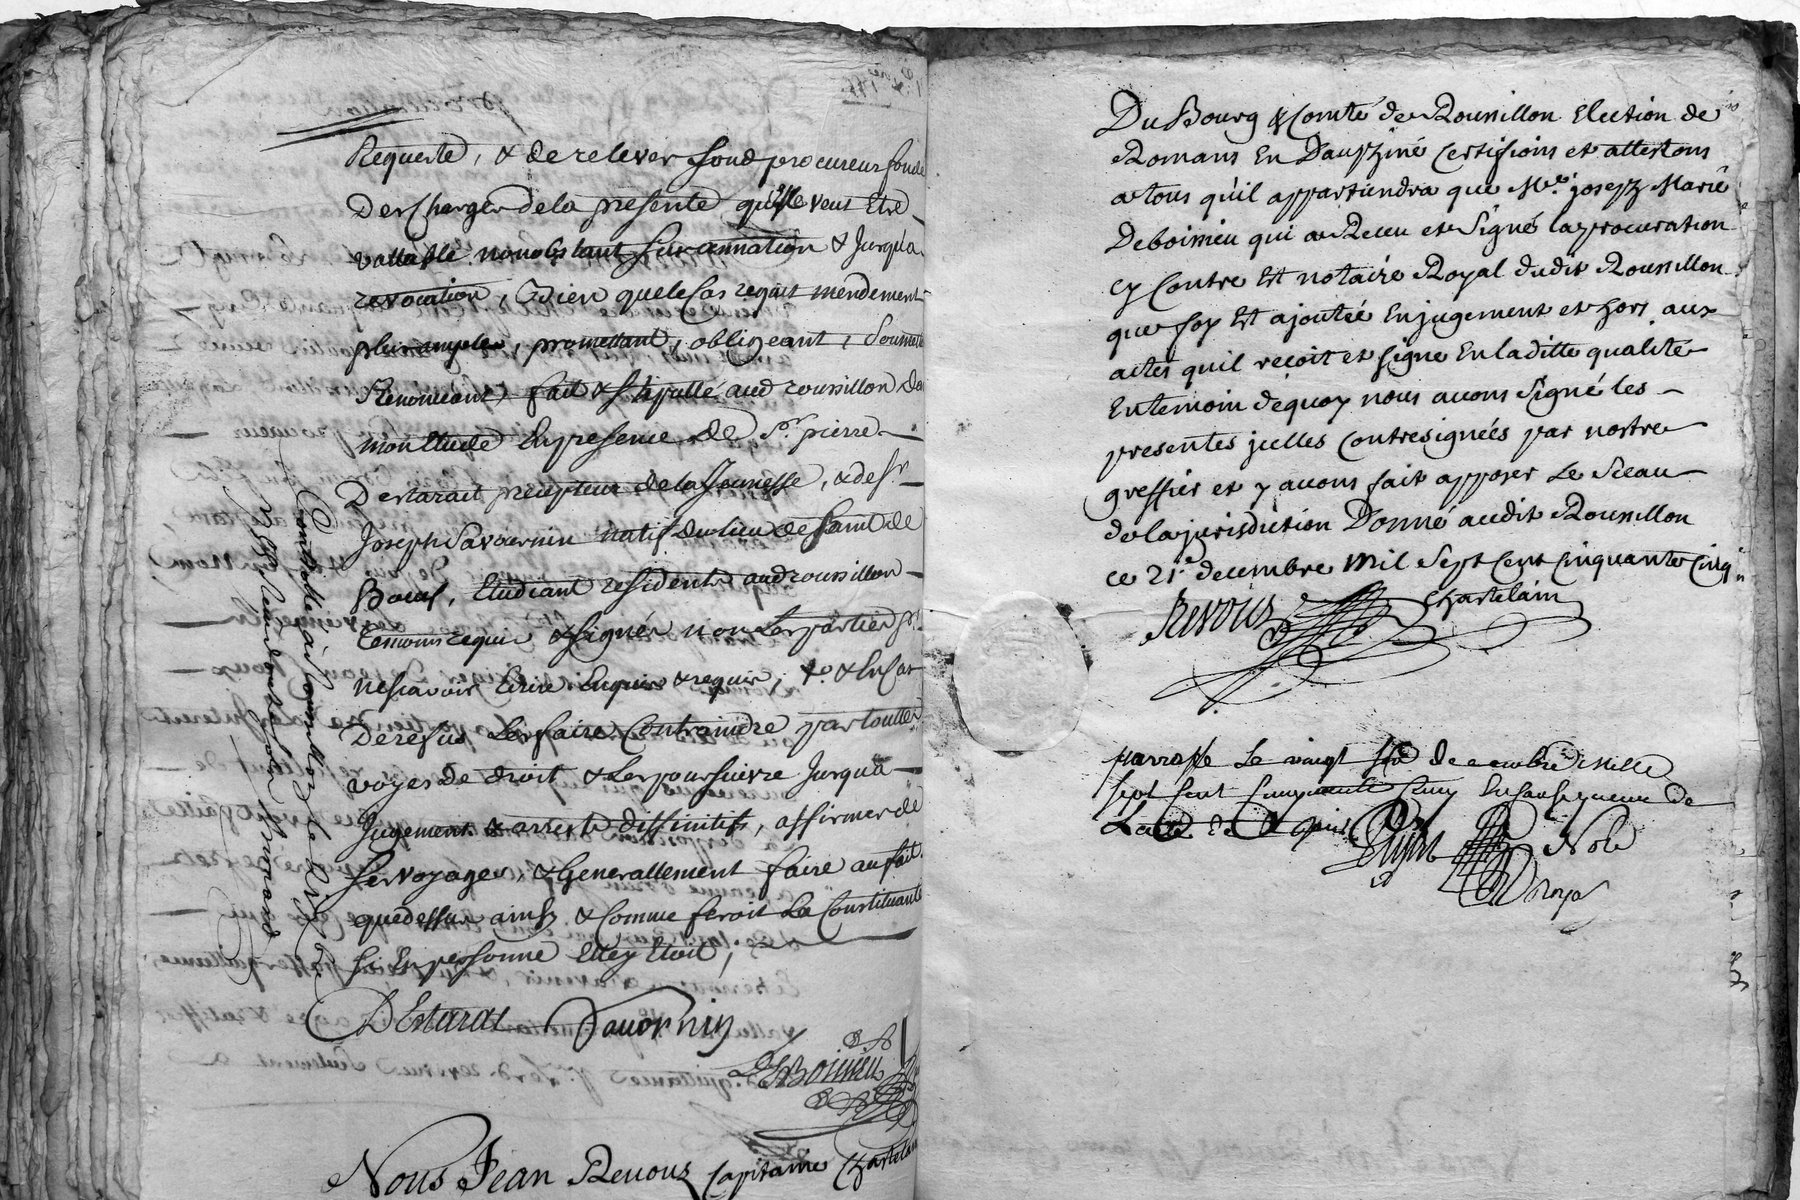 Requeste, & de relever sond procureur fondé
Descharger de la presente qu'elle veut Etre
vallable nonobstant surannation & Jusqua
revocation, Bien que le Cas requit mendement
plus ample, promettant, obligeant, Soumett
Renonceant, fait & stipullé aud roussillon da
mon Etude En presence de Sr. pierre
Destarait precepteur de la Jeunesse, & de sr
Joseph Savournin natif du lieu de Saint de
Boeuf, Etudiant residents aud roussillon
temoins requis & signés non Les parties pr.
ne scavoir Ecrire Enquis & requis, & En Cas
De refus Les faire Contraindre par touttes
voyes de droit & Les poursuivre Jusqua
Jugement & arrest diffinitifs, affirmer de
ses voyages, & Generallement faire au fait
que dessus ainsy & Comme feroit La Constituante
si En personne Elle y Etoit,
DEstarat Savornin
DeBoimieu
Nous Jean Revous Capitaine Chastelain
Controllé à
Du Bourg & Comté de Roussillon Election de
Romans En Dauphiné Certifions et attestons
a tous quil appartiendra que Me. joseph Marie
Deboimieu qui a Receu et Signé la procuration
cy Contre Est notaire Royal dudit Roussillon
que foy Est ajoutée En jugement et hors aux
actes quil reçoit et signe En la ditte qualité
En temoin dequoy nous avons Signé les
presentes jcelles Contresignées par nostre
greffier et y avons fait apposer Le Sceau
de la jurisdiction Donné audit Roussillon
ce 21e decembre Mil Sept Cent Cinquante Cinq
Revous Chastelain
parraffé Le vingt decembre Mille
sept Cent Cinquante Cinq En Consequence de
L'acte de